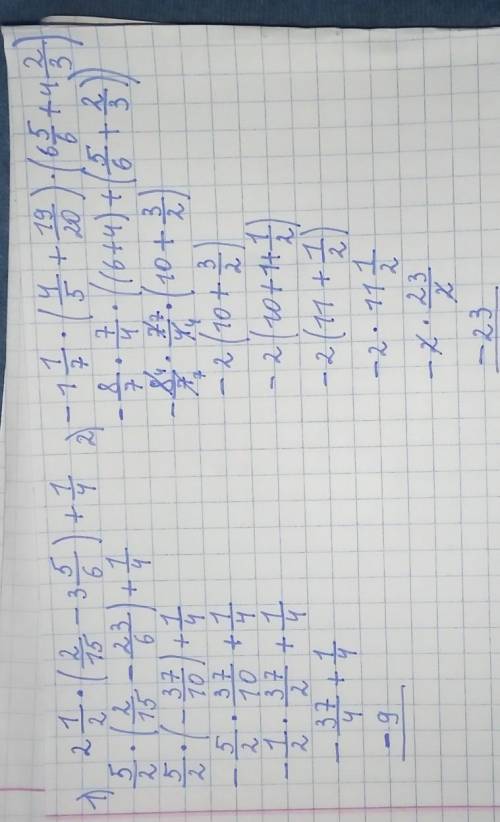 1) 2 1/2 · (2/15 - 3 5/6) + 1/4
5/2 · (2/15 - 23/6) + 1/4
5/2 · (- 37/10) + 1/4
- 5/2 · 37/10 + 1/4
- 1/2 · 37/2 + 1/4
- 37/4 + 1/4
- 9
2) - 1 1/7 · (4/5 + 19/20) · (6 5/6 + 4 2/3)
- 8/7 · 7/4 · ((6+4) + (5/6 + 2/3))
- 8/7 · 7/4 · (10 + 3/2)
- 2 (10 + 3/2)
- 2 (10 + 1 + 1/2)
- 2 (11 + 1/2)
- 2 · 11 1/2
- 2 · 23/2
- 23